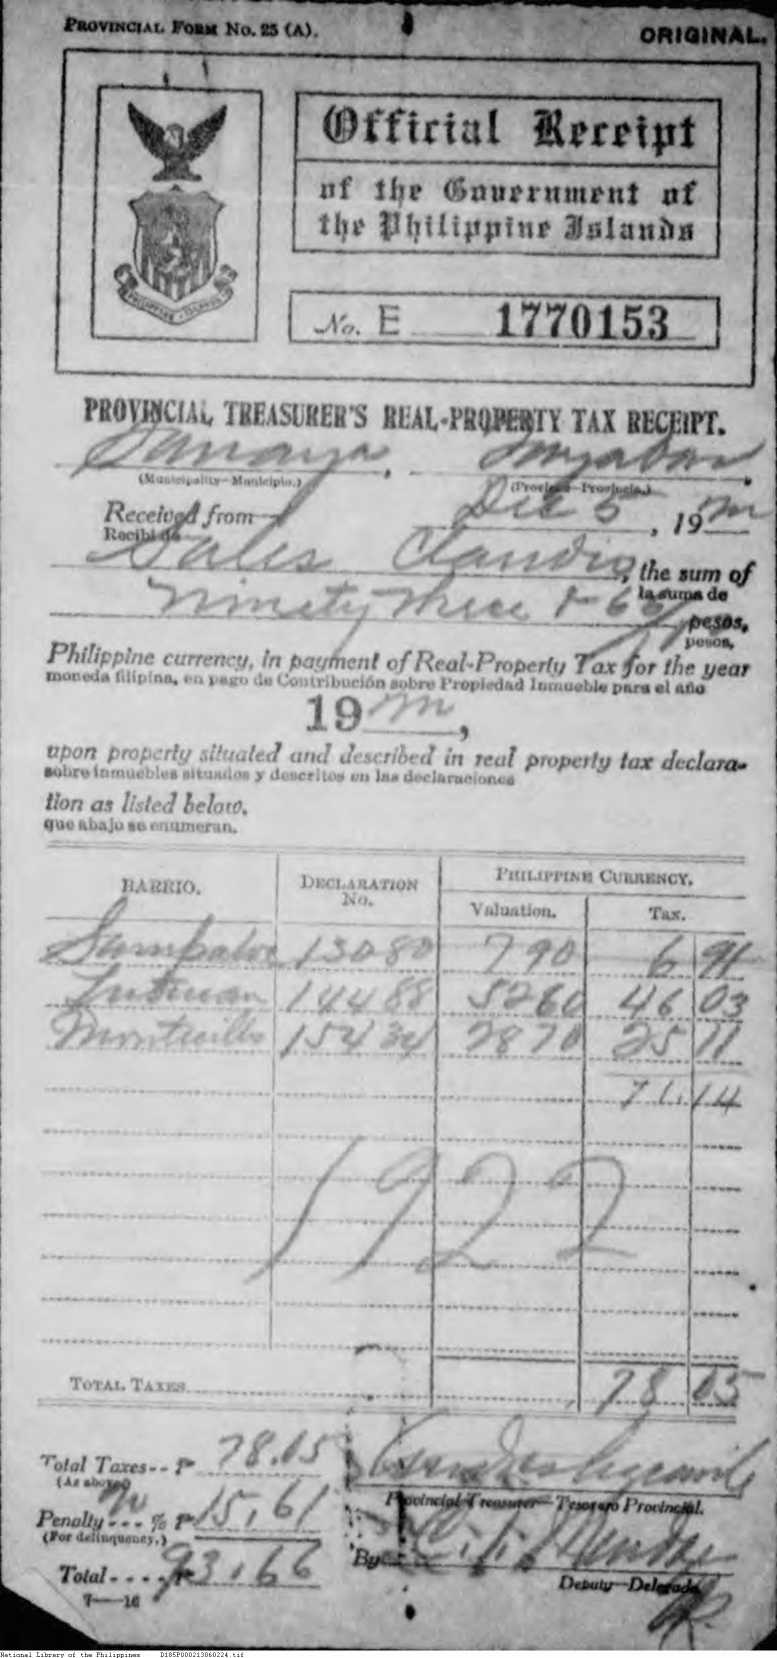 PROVINCIAL FORM No. 25 (A).
ORIGINAL.
PHILIPPINE ISLANDS
Official Receipt
of the Government of
the Philippine Islands
No. E 1770153
PROVINCIAL TREASURER'S REAL-PROPERTY TAX RECEIPT.
Tayabas
(Municipality—Municipio.) (Province—Provincia.)
Received from Dec 5, 19
Recibí de
Sales Claudio, the sum of
la suma de
Ninety three & 66/ pesos,
pesos,
Philippine currency, in payment of Real-Property Tax for the year
moneda filipina, en pago de Contribución sobre Propiedad Inmueble para el año
19 ,
upon property situated and described in real property tax declara-
sobre inmuebles situados y descritos en las declaraciones
tion as listed below.
que abajo se enumeran.
BARRIO. DECLARATION No. PHILIPPINE CURRENCY.
Valuation. Tax.
Sumpaloc 13080 790 6 91
14488 5260 46 03
15434 2870 25 11
71.14
1922
TOTAL TAXES 78 05
Total Taxes-- ₱ 78.05
(As above)
Provincial Treasurer—Tesorero Provincial.
Penalty --- 20 % ₱ 15.61
(For delinquency.)
By
Total ---- ₱ 93.66
Deputy—Delegado
7—16
National Library of the Philippines D185P000213060224.tif